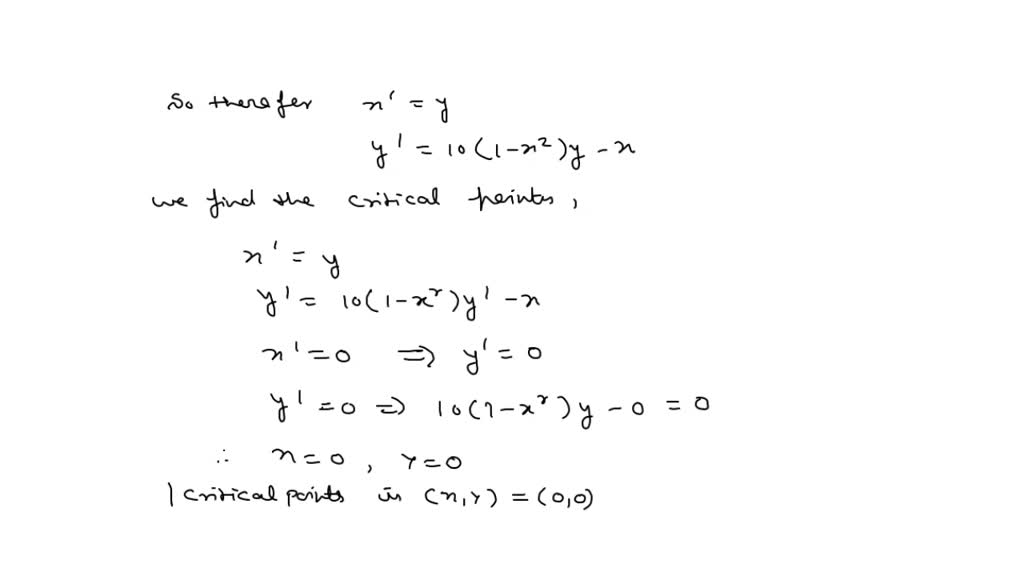 So therefer x' = y
y' = 10(1-x²)y - x
we find the critical points,
x' = y
y' = 10(1-x²)y' - x
x' = 0 ⇒ y' = 0
y' = 0 ⇒ 10(1-x²)y - 0 = 0
∴ x = 0, Y = 0
1 critical points is (x,Y) = (0,0)